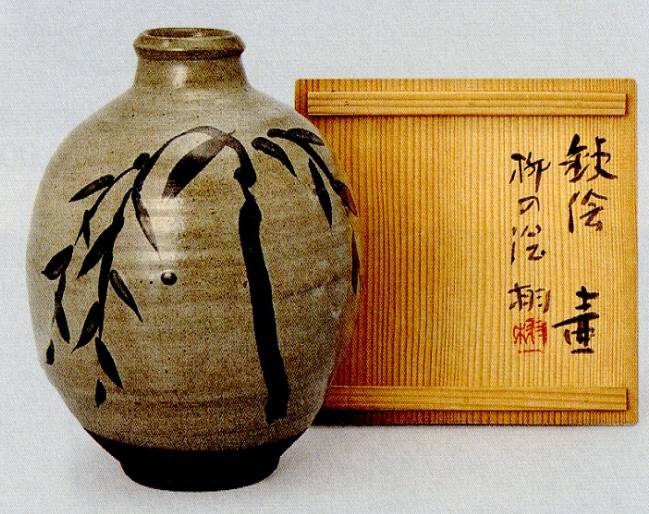 鉄絵 壷
柳の絵